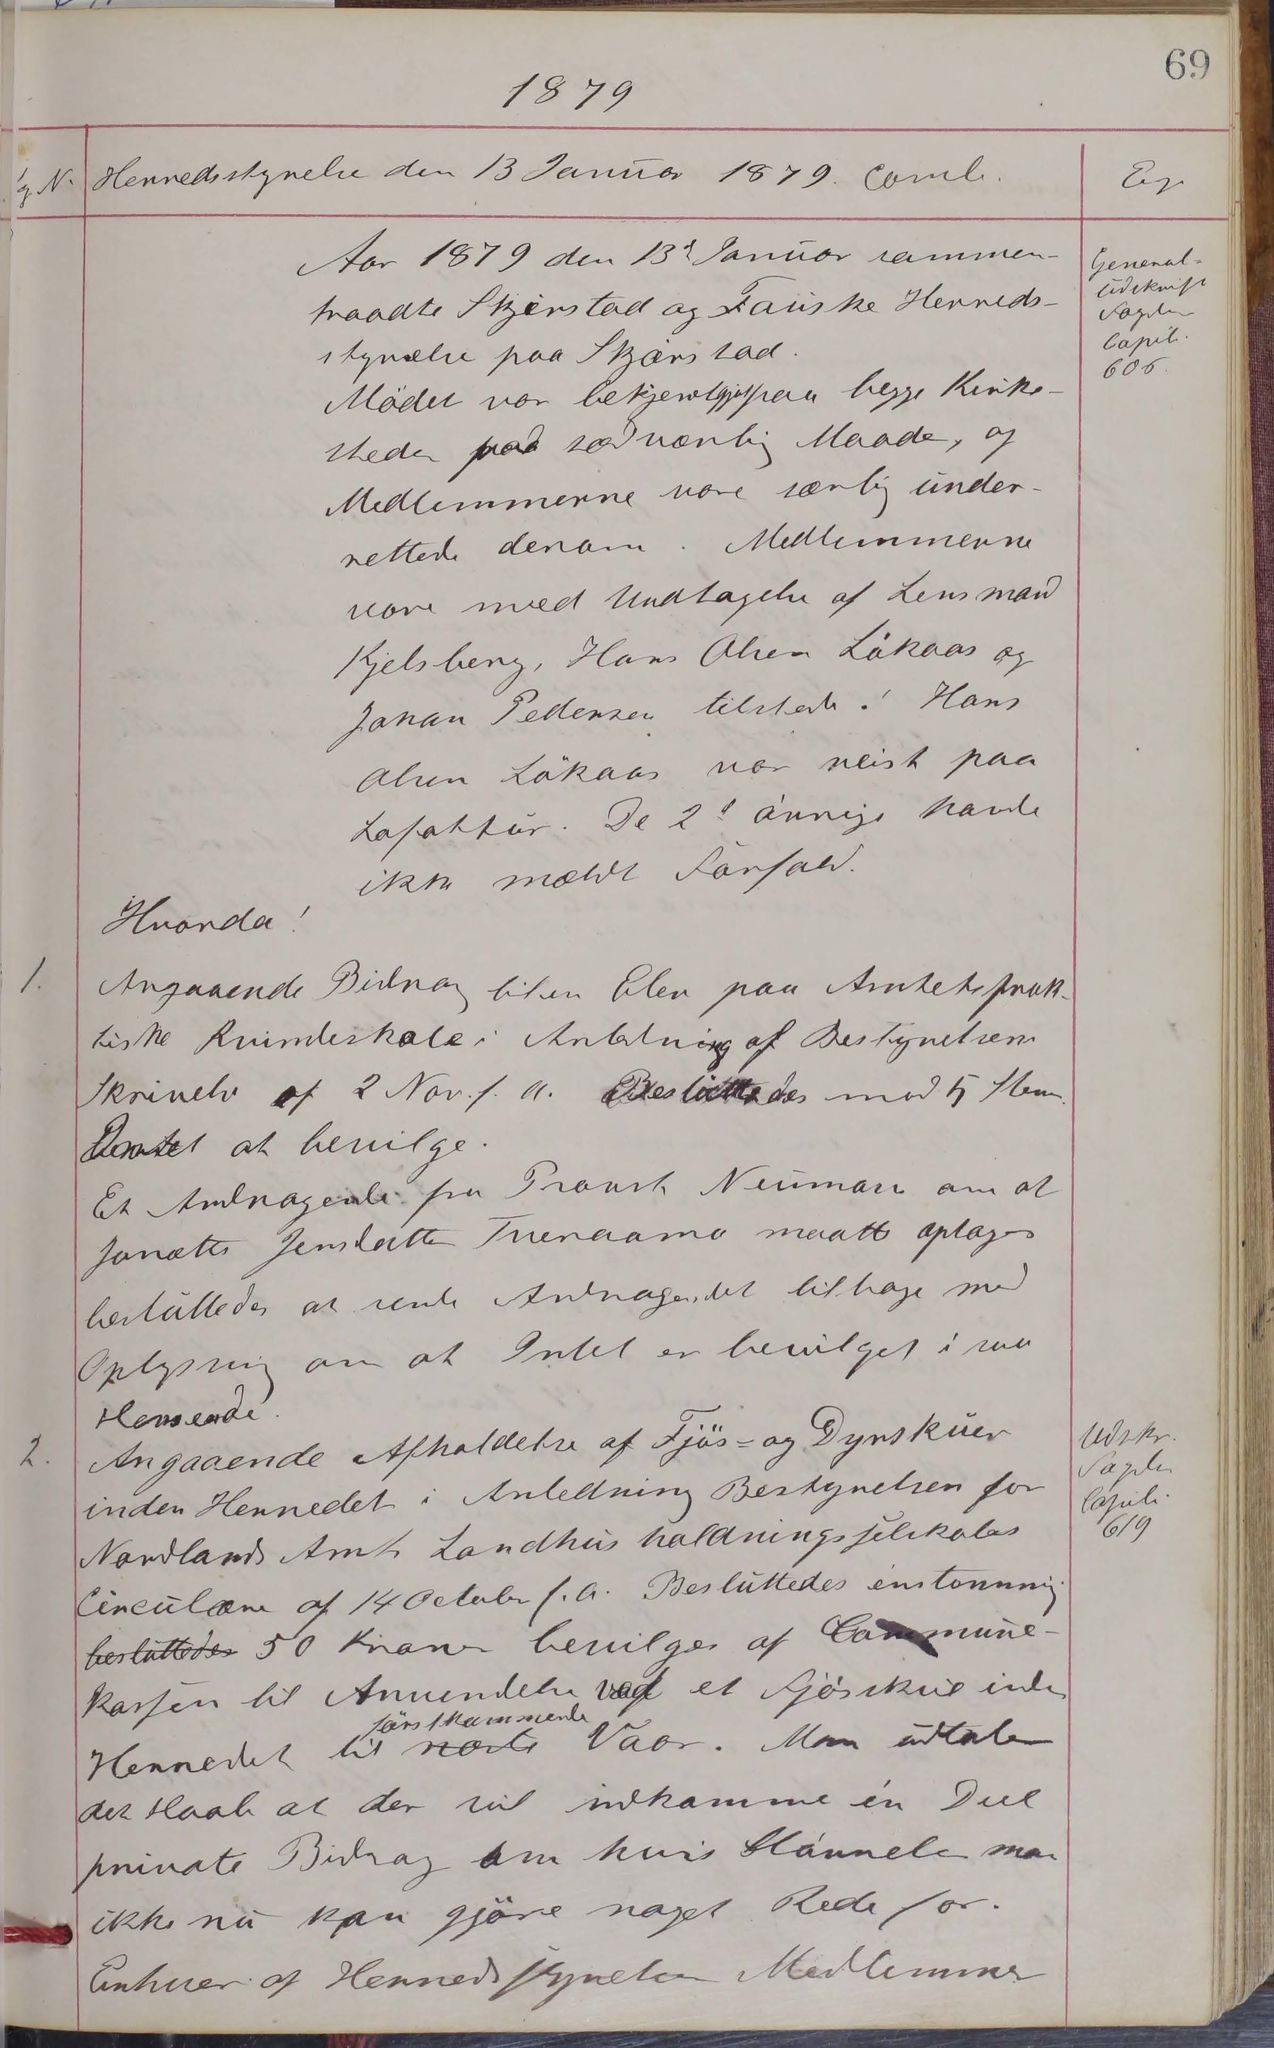 69
1879
g. N. Herredsstyrelse den 13 Januar 1879. Comb. Exp
Aar 1879 den 13d Januar sammen-
traadte Skjerstad og Fauske Herreds-
styrelse paa Skjerstad.
Mödet var bekjendtgjort paa begge Kirke-
steder paa sædvanlig Maade, og
Medlemmerne vare særlig under-
rettede derom. Medlemmerne
vare med Undtagelse af Lensmand
Kjelsberg, Hans Olsen Lökaas og
Johan Pedersen tilstede! Hans
Olsen Lökaas var reist paa
Lofottur. De 2d övrige havde
ikke mældt Forfald.
General-
udskrift
Fogden
Copib.
606.
Hvorda!
1. Angaaende Bidrag til en Elev paa Amtets prak-
tiske Kvindeskole i Anledning af Bestyrelsens
Skrivelse af 2 Nov. f. A. Besluttedes mod 5 Stem.
Intet at bevilge.
Et Andragende fra Provst Neumann om at
Janette Jensdatter Tveraamo maatte optages
besluttedes at sende Andragendet tilbage med
Oplysning om at Intet er bevilget i saa
Henseende.
2. Angaaende Afholdelse af Fjös- og Dyrskuer
inden Herredet i Anledning Bestyrelsen for
Nordlands Amts Landhusholdningsselskabs
Circulære af 14 October f. A. Besluttedes enstemmig
besluttedes 50 Kroner bevilges af Commune-
kassen til Anvendelse ved et Fjösskue inden
förstkommende
Herredet til næste Vaar. Man udtaler
det Haab at der vil indkomme en Deel
private Bidrag om hvis Störrelse man
ikke nu kan gjöre noget Rede for.
Enhver af Herredsstyrelsen Medlemmer
Udskr.
Fogden
Copib.
619